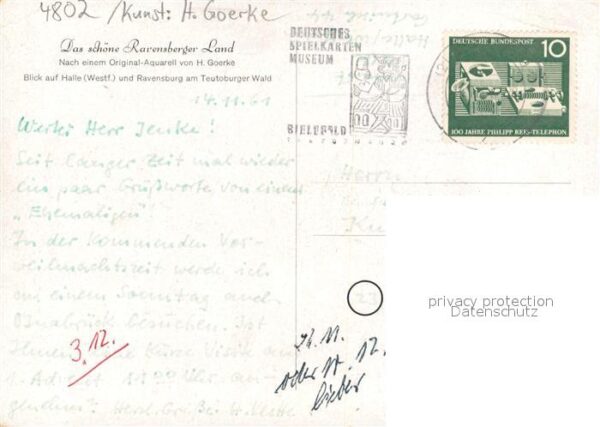 4802 / Kunst: H. Goerke
Das schöne Ravensberger Land
Nach einem Original-Aquarell von H. Goerke
Blick auf Halle (Westf.) und Ravensburg am Teutoburger Wald
DEUTSCHES
SPIELKARTEN
MUSEUM
BIELEFELD
DEUTSCHE BUNDESPOST 10
100 JAHRE PHILIPP REIS-TELEPHON
14.11.61
Werter Herr Jenke!
Seit langer Zeit mal wieder
ein paar Grußworte von einem
„Ehemaligen"!
In der kommenden Vor-
weihnachtszeit werde ich
an einem Sonntag auch
Osnabrück besuchen. Ist
Ihnen die kurze Visite am
1. Advent Uhr an-
genehm? Herzl. Grüße
Herrn
23
privacy protection
Datenschutz
3.12.
oder 17. 12.
lieber